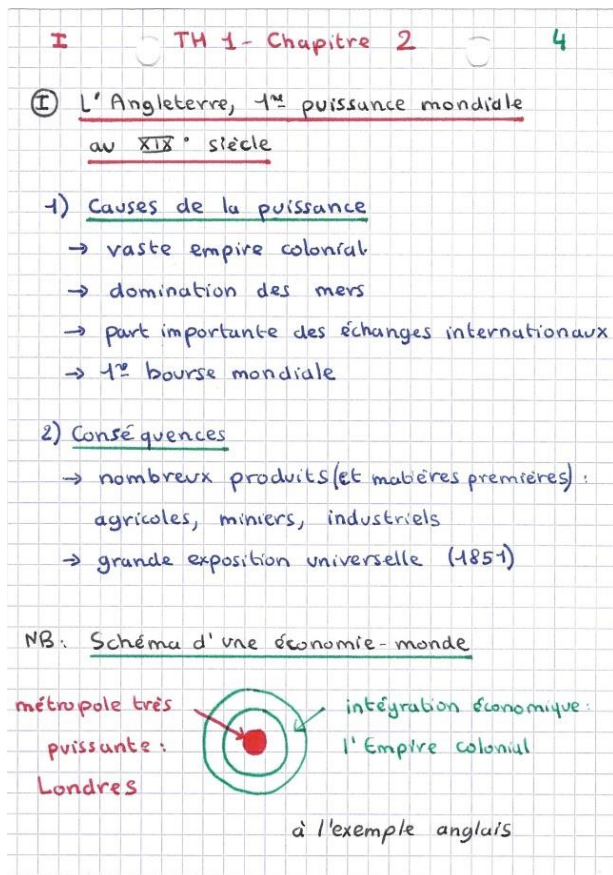 I TH 1 - Chapitre 2 4
I L'Angleterre, 1re puissance mondiale
au XIX° siècle
1) Causes de la puissance
→ vaste empire colonial
→ domination des mers
→ part importante des échanges internationaux
→ 1re bourse mondiale
2) Conséquences
→ nombreux produits (et matières premières) :
agricoles, miniers, industriels
→ grande exposition universelle (1851)
NB : Schéma d'une économie-monde
métropole très
puissante :
Londres
intégration économique :
l'Empire colonial
à l'exemple anglais